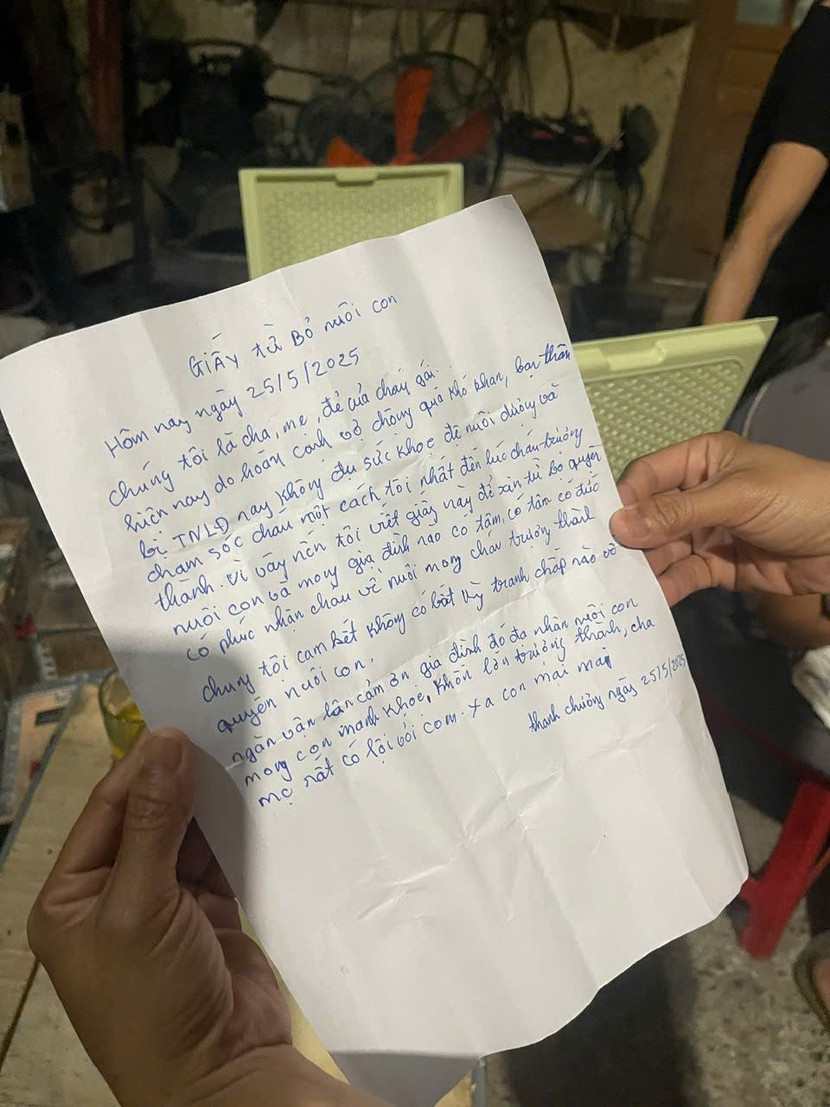 GIẤY từ Bỏ nuôi con
Hôm nay ngày 25/5/2025
chúng tôi là cha, mẹ, đẻ của cháu gái.
hiện nay do hoàn cảnh vở chồng quá khó khan, bạn thân
bị TNLĐ nay không đủ sức khoẻ để nuôi dưỡng và
chăm sóc cháu một cách tối nhất đến lúc cháu trưởng
thành. vì vậy nên tôi viết giấy này để xin từ bỏ quyền
nuôi con và mong gia đình nào có tâm, có tâm có đức
có phúc nhận cháu về nuôi mong cháu trưởng thành
chúng tôi cam kết không có bất kỳ tranh chấp nào về
quyền nuôi con.
ngàn vân lân cảm ơn gia đình đó đa nhận nuôi con
mong con mạnh khoẻ, khôn lớn trưởng thành, cha
mẹ rất có lội với com. xa con mai mai
thanh chương ngày 25/5/2025